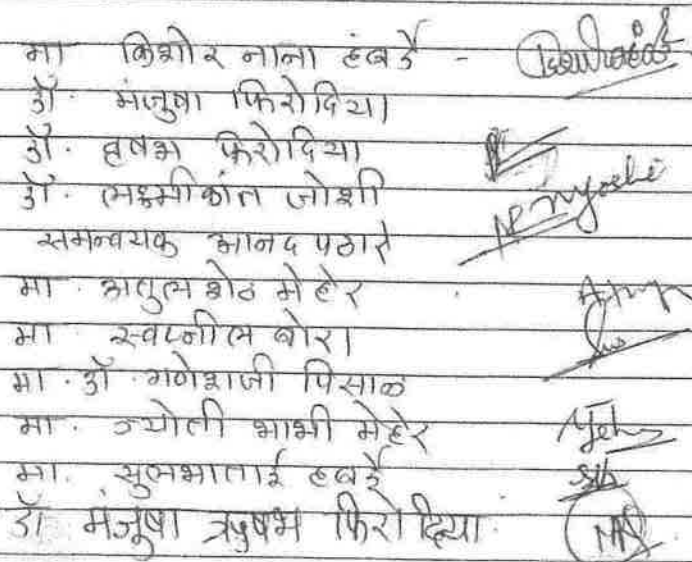 मा किशोर नाना हंबर्डे -
डॉ. मंजुषा फिरोदिया
डॉ. ऋषभ फिरोदिया
डॉ. लक्ष्मीकांत जोशी
समन्वयक आनंद पठारे
मा. अतुल शेठ मेहेर
मा. स्वप्नील बोरा
मा. डॉ. गणेशजी पिसाळ
मा. ज्योती भाभी मेहेर
मा. सुलभाताई हंबर्डे
डॉ मंजुषा ऋषभ फिरोदिया.